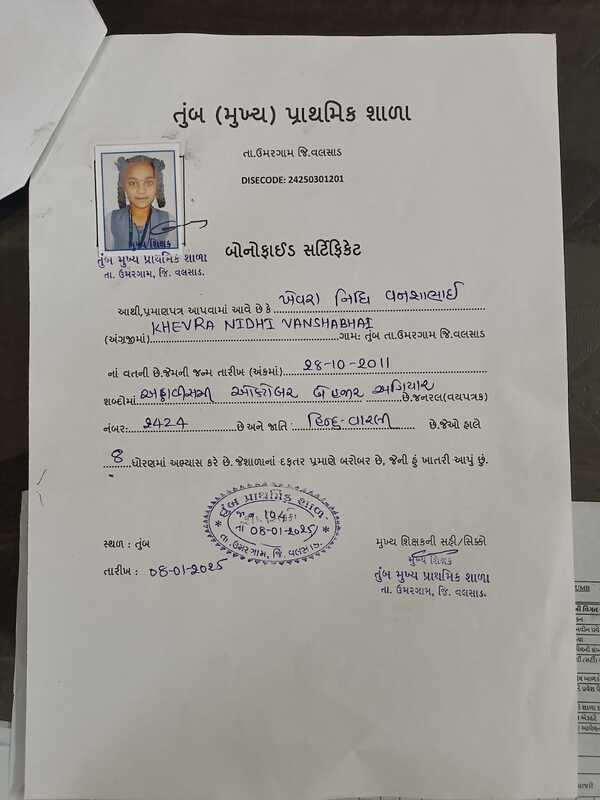 તુંબ (મુખ્ય) પ્રાથમિક શાળા
તા.ઉમરગામ જિ.વલસાડ
DISECODE: 24250301201
મુખ્ય શિક્ષક
તુંબ મુખ્ય પ્રાથમિક શાળા
તા. ઉમરગામ, જિ. વલસાડ.
બોનોફાઈડ સર્ટિફિકેટ
આથી,પ્રમાણપત્ર આપવામાં આવે છે કે ખેવરા નિધિ વનશાભાઈ
(અંગ્રજીમાં) KHEVRA NIDHI VANSHABHAI ગામ: તુંબ તા.ઉમરગામ જી.વલસાડ
નાં વતની છે.જેમની જન્મ તારીખ (અંકમાં) ૨૮-૧૦-૨૦૧૧
શબ્દોમાં અઠ્ઠાવીસમી ઓક્ટોબર બે હજાર અગિયાર છે.જનરલ(વયપત્રક)
નંબર: ૨૪૨૪ છે અને જાતિ : હિન્દુ-વારલી છે.જેઓ હાલે
૪ ધોરણમાં અભ્યાસ કરે છે. જેશાળાનાં દફતર પ્રમાણે બરોબર છે, જેની હું ખાતરી આપું છું.
તુંબ પ્રાથમિક શાળા
જા.નં. 194
તા 08-01-2025
તા. ઉમરગામ, જિ. વલસાડ.
સ્થળ : તુંબ
મુખ્ય શિક્ષકની સહી/સિક્કો
તારીખ : 08-01-2025
મુખ્ય શિક્ષક
તુંબ મુખ્ય પ્રાથમિક શાળા
તા. ઉમરગામ, જિ. વલસાડ.